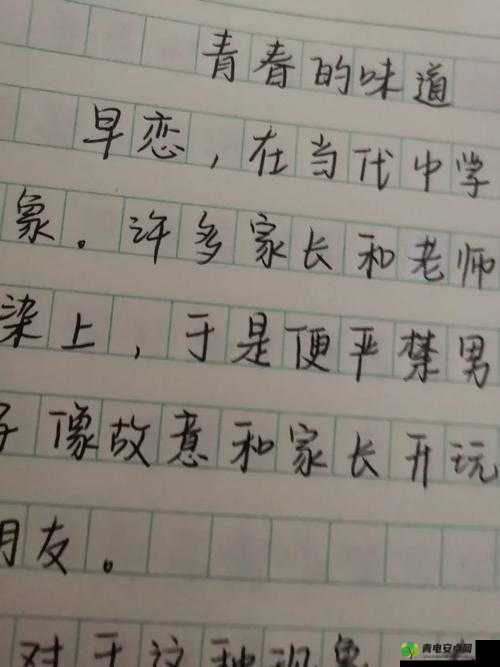 青春的味道
早恋，在当代中学
象。许多家长和老师
染上，于是便严禁男
子像故意和家长开玩
朋友。
对于这种现象
青电安卓网